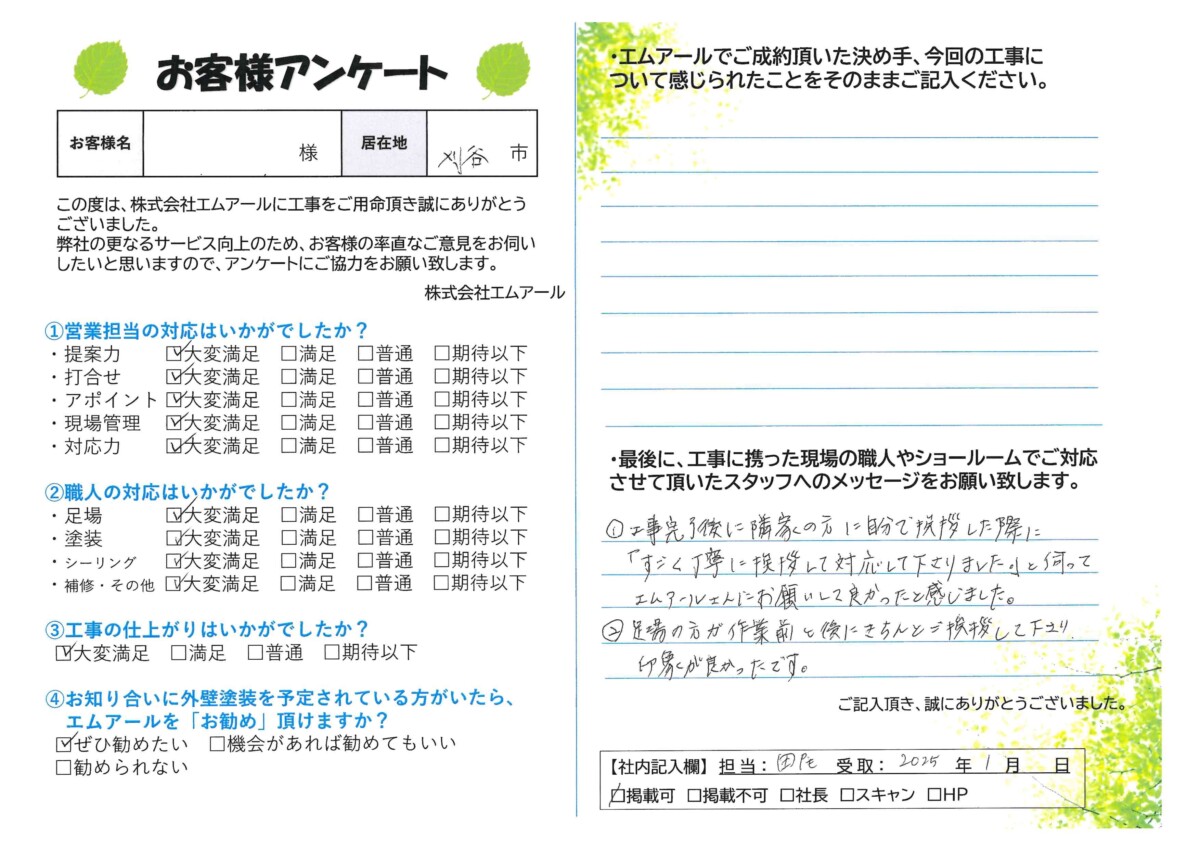 お客様アンケート
お客様名 様 居在地 刈谷 市
この度は、株式会社エムアールに工事をご用命頂き誠にありがとう
ございました。
弊社の更なるサービス向上のため、お客様の率直なご意見をお伺い
したいと思いますので、アンケートにご協力をお願い致します。
株式会社エムアール
①営業担当の対応はいかがでしたか？
・提案力 ☑大変満足 □満足 □普通 □期待以下
・打合せ ☑大変満足 □満足 □普通 □期待以下
・アポイント ☑大変満足 □満足 □普通 □期待以下
・現場管理 ☑大変満足 □満足 □普通 □期待以下
・対応力 ☑大変満足 □満足 □普通 □期待以下
②職人の対応はいかがでしたか？
・足場 ☑大変満足 □満足 □普通 □期待以下
・塗装 ☑大変満足 □満足 □普通 □期待以下
・シーリング ☑大変満足 □満足 □普通 □期待以下
・補修・その他 ☑大変満足 □満足 □普通 □期待以下
③工事の仕上がりはいかがでしたか？
☑大変満足 □満足 □普通 □期待以下
④お知り合いに外壁塗装を予定されている方がいたら、
エムアールを「お勧め」頂けますか？
☑ぜひ勧めたい □機会があれば勧めてもいい
□勧められない
・エムアールでご成約頂いた決め手、今回の工事に
ついて感じられたことをそのままご記入ください。
・最後に、工事に携った現場の職人やショールームでご対応
させて頂いたスタッフへのメッセージをお願い致します。
①工事完了後に隣家の方に自分で挨拶した際に
「すごく丁寧に挨拶して対応して下さりました。」と伺って
エムアールさんにお願いして良かったと感じました。
②足場の方が作業前と後にきちんとご挨拶して下さり
印象が良かったです。
ご記入頂き、誠にありがとうございました。
【社内記入欄】 担当： 受取： 2025 年 1 月 日
☑掲載可 □掲載不可 □社長 □スキャン □HP